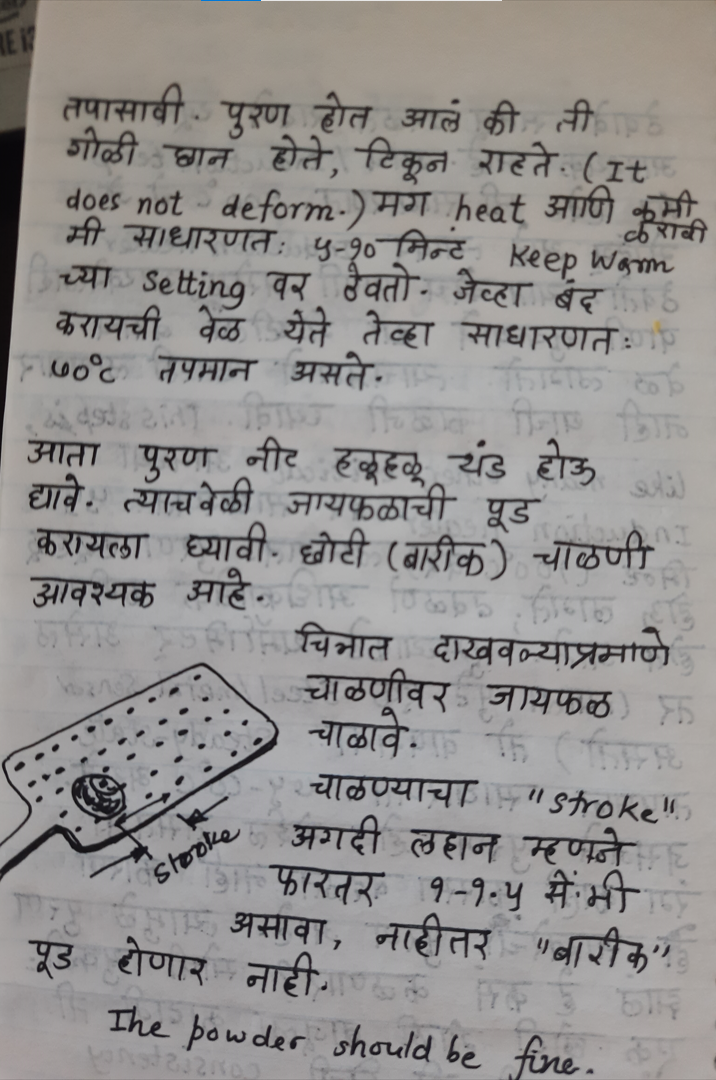 तपासावी. पुरण होत आलं की ती
गोळी छान होते, टिकून राहते. (It
does not deform.) मग heat आणि कमी
करावी
मी साधारणतः ५-१० मिन्टं Keep Warm
च्या setting वर ठेवतो. जेव्हा बंद
करायची वेळ येते तेव्हा साधारणतः
७०°C तपमान असते.
आता पुरण नीट हळूहळू थंड होऊ
द्यावे. त्याचवेळी जायफळाची पूड
करायला घ्यावी. छोटी (बारीक) चाळणी
आवश्यक आहे.
चित्रात दाखवल्याप्रमाणे
चाळणीवर जायफळ
चाळावे.
चाळण्याचा "stroke"
stroke
अगदी लहान म्हणजे
फारतर १-१.५ सें.मी
असावा, नाहीतर "बारीक"
पूड होणार नाही.
The powder should be fine.